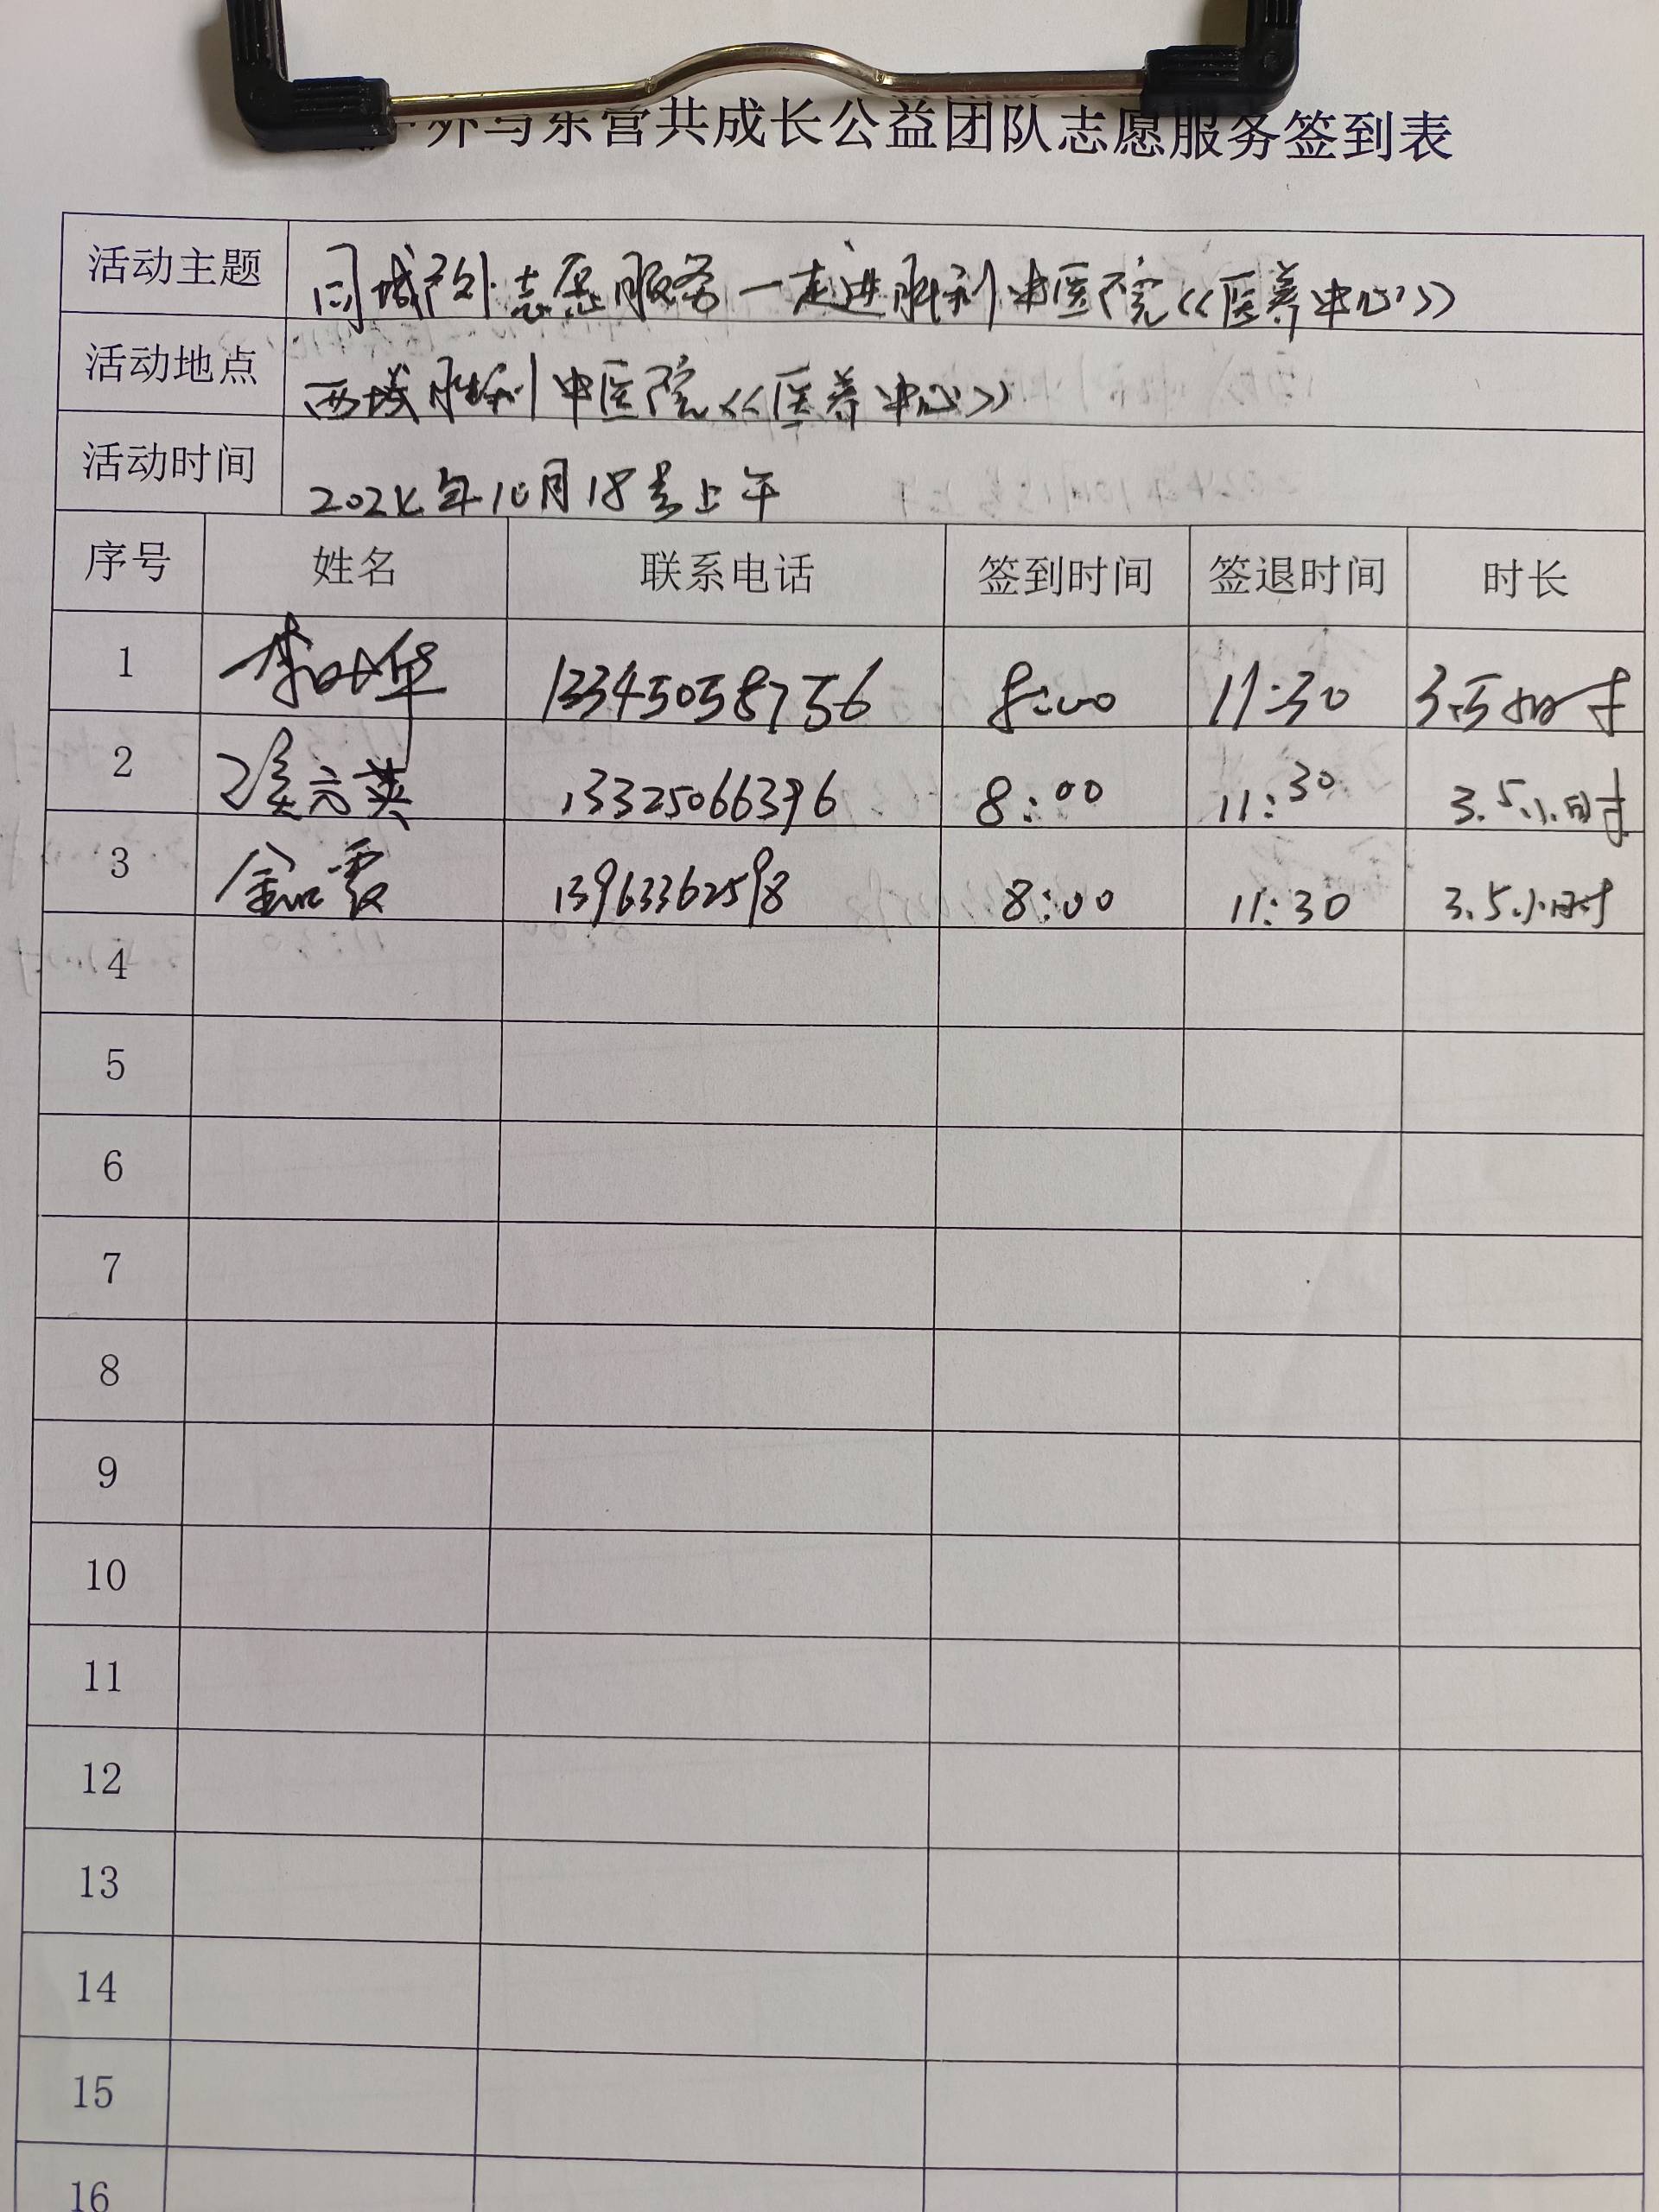 外与东营共成长公益团队志愿服务签到表
活动主题 同城户外志愿服务一走进胜利中医院《医养中心》
活动地点 西城胜利中医院《医养中心》
活动时间 2024年10月18号上午
序号 姓名 联系电话 签到时间 签退时间 时长
1 李华 13345058756 8:00 11:30 3.5小时
2 元英 13325066396 8:00 11:30 3.5小时
3 霞 13963362598 8:00 11:30 3.5小时
4
5
6
7
8
9
10
11
12
13
14
15
16